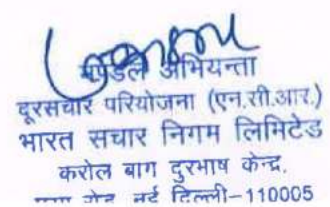 मण्डल अभियन्ता
दूरसंचार परियोजना (एन.सी.आर.)
भारत संचार निगम लिमिटेड
करोल बाग दुरभाष केन्द्र,
रोड नई दिल्ली-110005